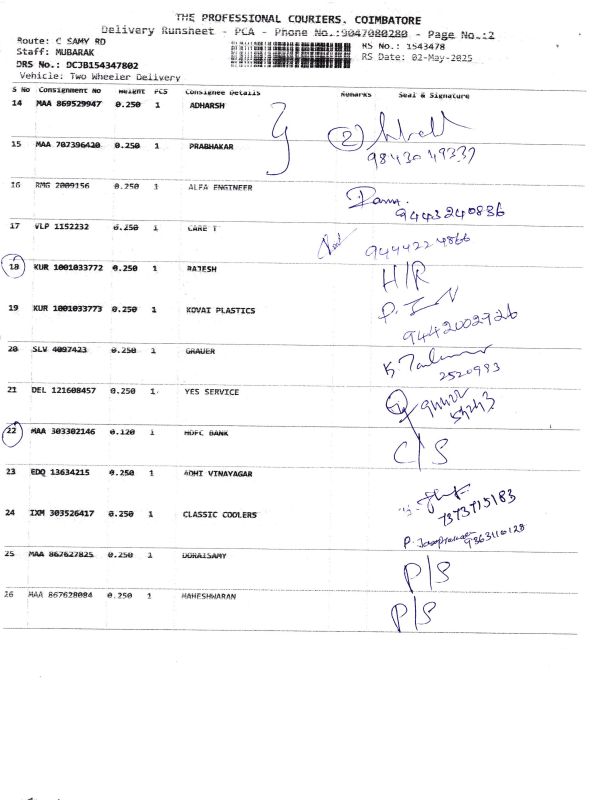 THE PROFESSIONAL COURIERS, COIMBATORE
Delivery Runsheet - PCA - Phone No.:9047080280 - Page No.:2
Route: C SAMY RD RS No.: 1543478
Staff: MUBARAK RS Date: 02-May-2025
DRS No.: DCJB154347802
Vehicle: Two Wheeler Delivery
S No Consignment No Weight PCS Consignee Details Remarks Seal & Signature
14 MAA 869529947 0.250 1 ADHARSH
2
15 MAA 707396420 0.250 1 PRABHAKAR
9843049337
16 RMG 2009156 0.250 1 ALFA ENGINEER
9443240836
17 VLP 1152232 0.250 1 CARE T
9444224866
18 KUR 1001033772 0.250 1 RAJESH H/R
19 KUR 1001033773 0.250 1 KOVAI PLASTICS
9442002926
20 SLV 4097423 0.250 1 GRAUER
2520983
21 DEL 121608457 0.250 1 YES SERVICE
22 MAA 303302146 0.120 1 HDFC BANK C/S
23 EDQ 13634215 0.250 1 ADHI VINAYAGAR
7373715183
24 IXM 303526417 0.250 1 CLASSIC COOLERS
9863110128
25 MAA 867627825 0.250 1 DORAISAMY P/S
26 MAA 867628084 0.250 1 MAHESHWARAN P/S